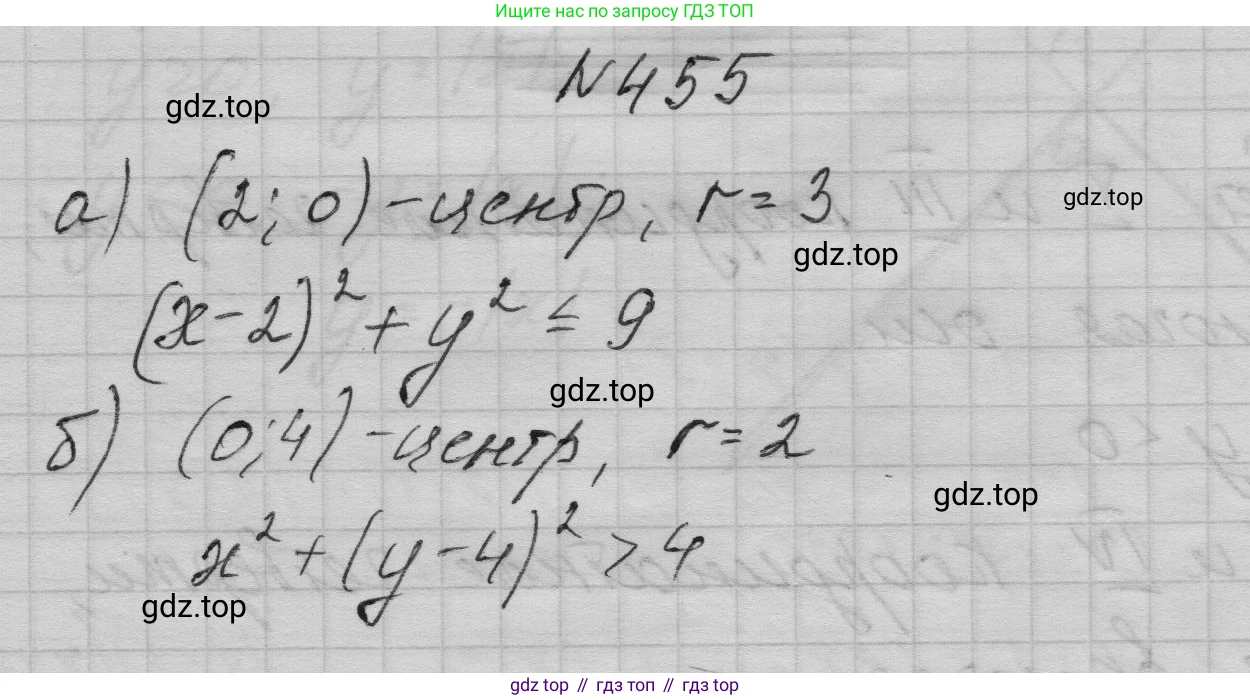 Ищите нас по запросу ГДЗ ТОП
N455
gdz.top
а) (2; 0) – центр, r = 3
gdz.top
gdz.top
(x-2)² + y² ≤ 9
gdz.top
б) (0; 4) – центр, r = 2
gdz.top
x² + (y-4)² > 4
gdz.top
gdz top // гдз топ // gdz top